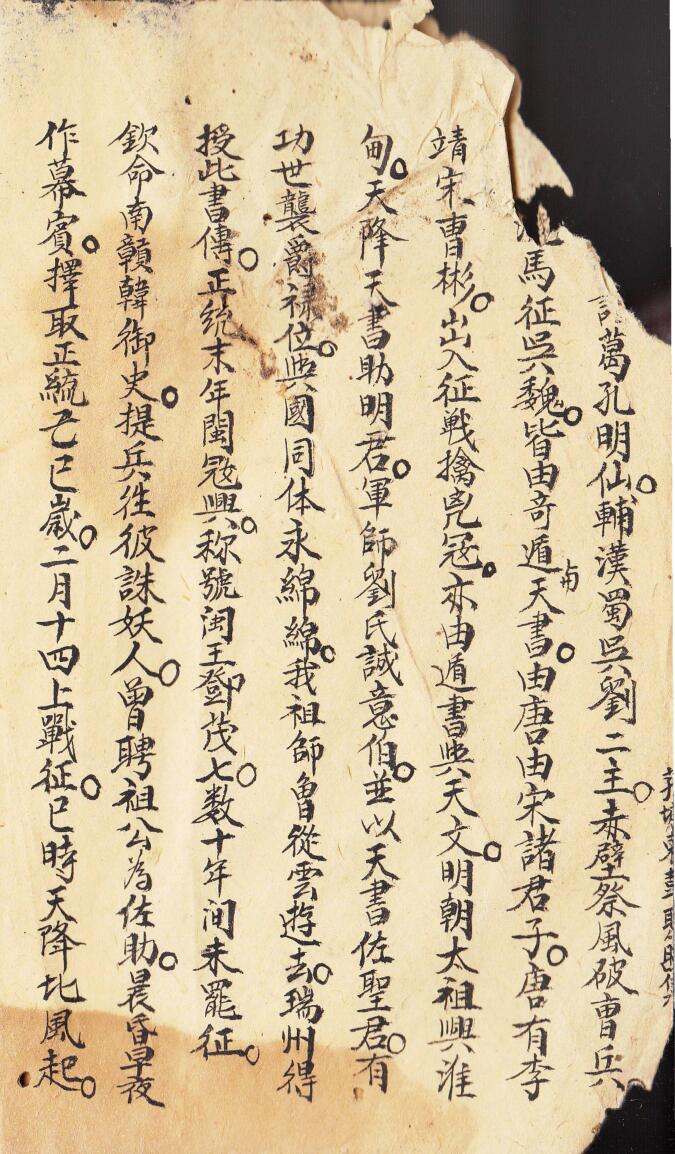 葛孔明仙。輔漢蜀吳劉二主。赤壁祭風破曹兵。
馬征吳魏。皆由奇遁天書。由唐由宋諸君子。唐有李
靖宋曹彬。出入征戦擒児冦。亦由遁書與天文。明朝太祖興淮
甸。天降天書助明君。軍師劉氏誠意伯。並以天書佐聖君。有
功世襲爵禄位。與國同体永綿綿。我祖師曾從雲遊去。瑞州得
授此書傳。正统末年閩冦興。称號闽王鄧茂七。数十年间未罷征。
欽命南贛韓御史。提兵往彼誅妖人。曾聘祖公為佐助。晨昏早夜
作幕賓。擇取正統己巳歲。二月十四上戰征。巳時天降北風起。